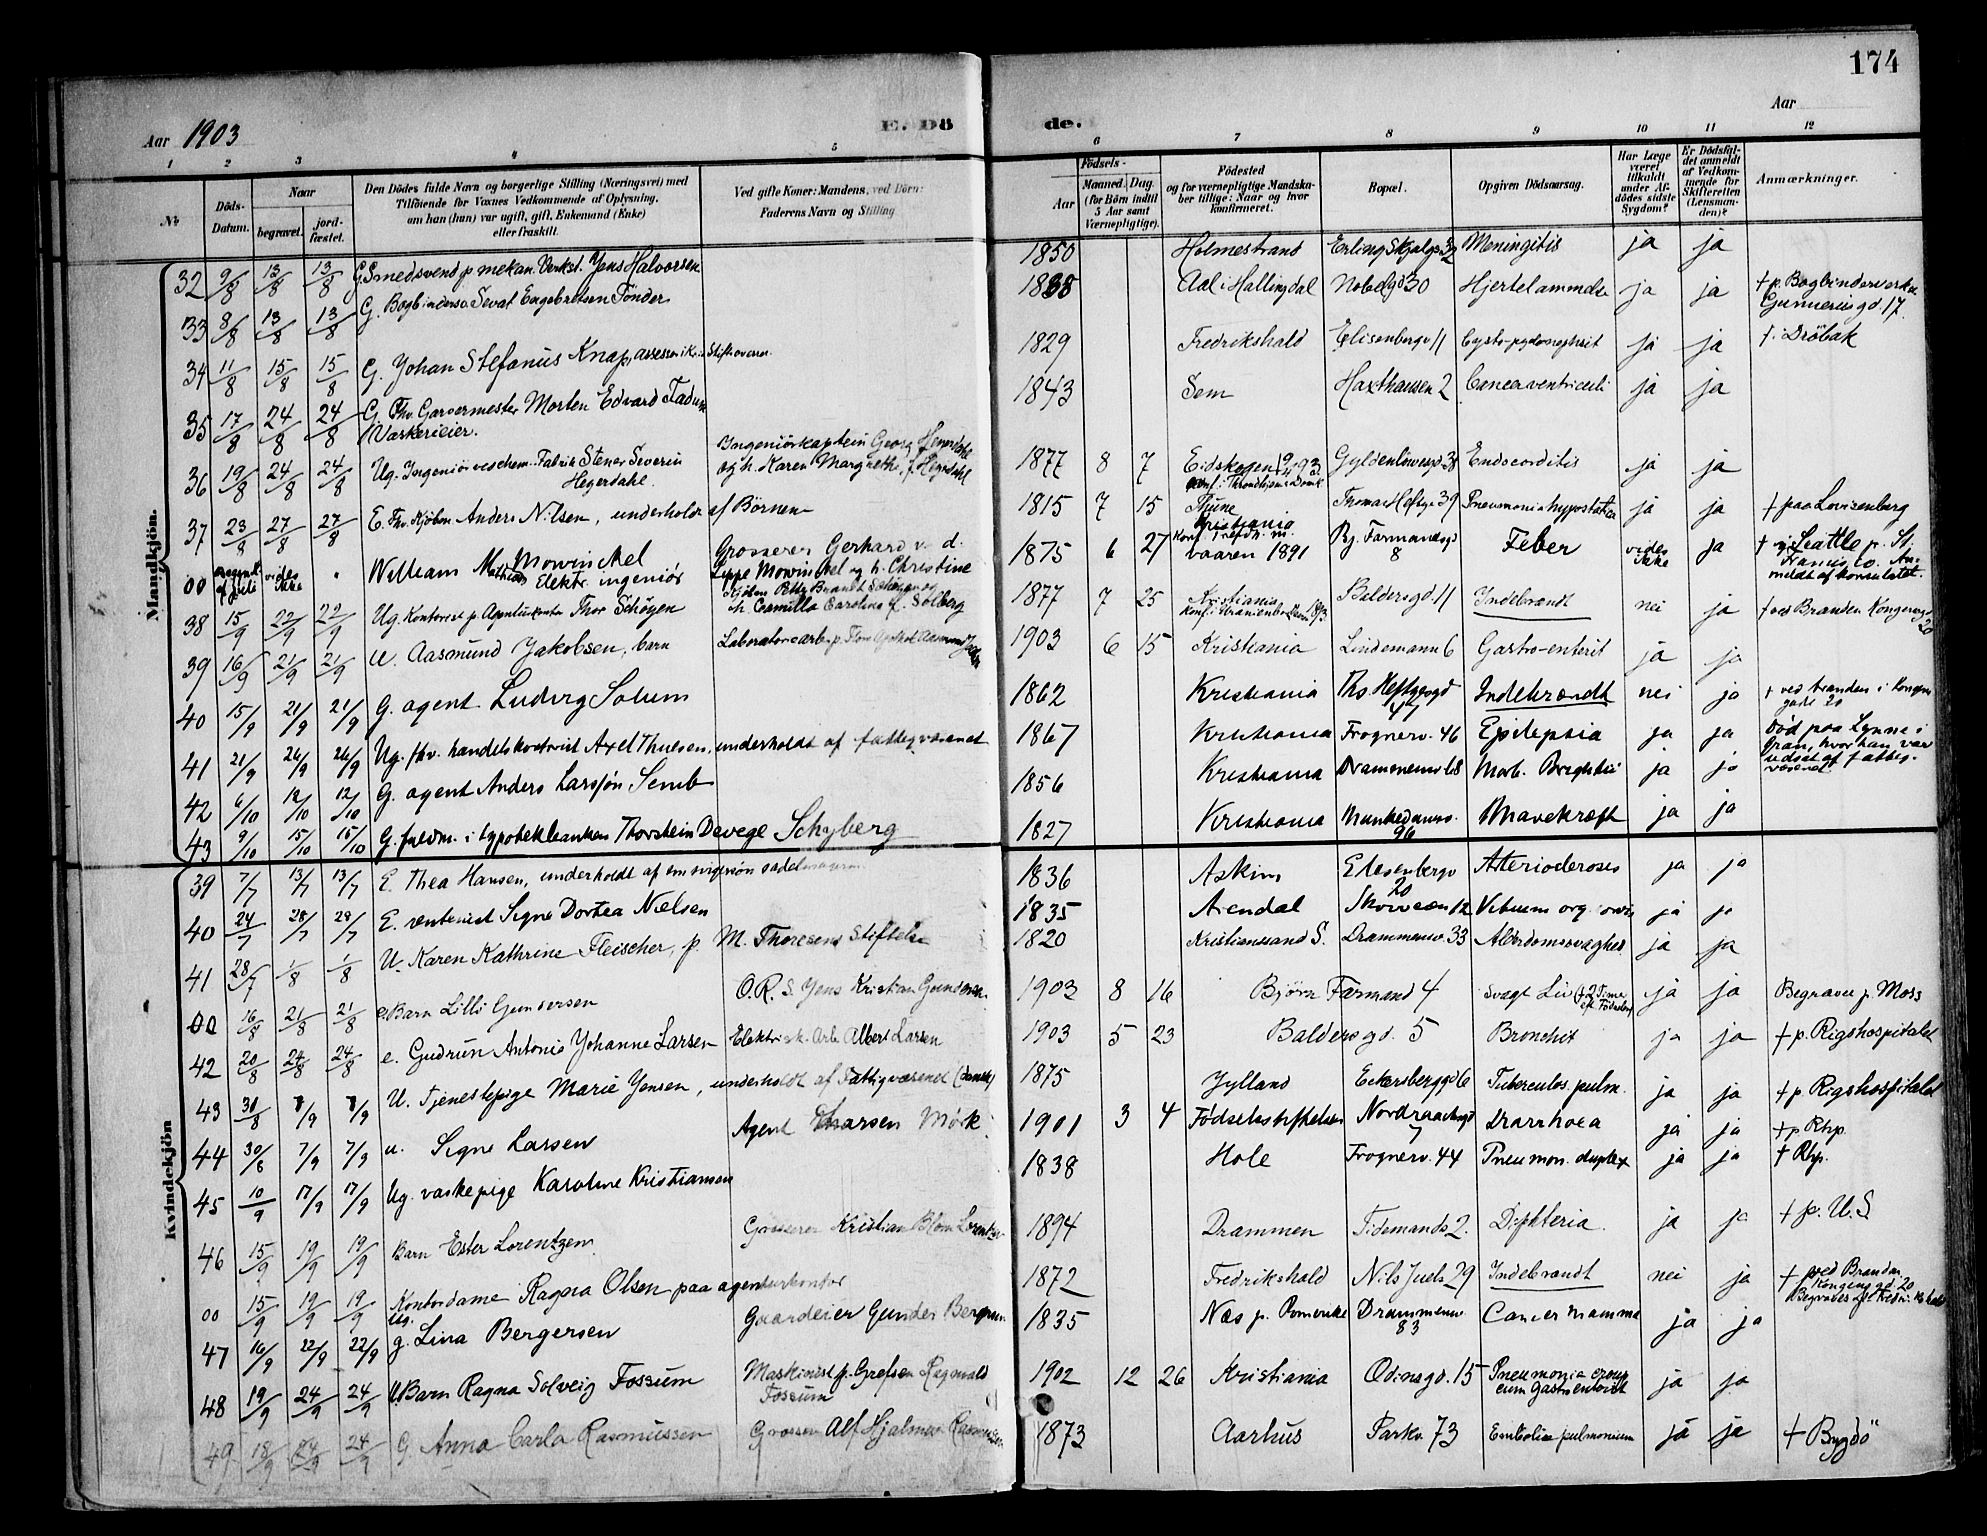 174
Aar 1903
E. Dö de.
Aar
1 2 3 4 5 6 7 8 9 10 11 12
№
Döds-Datum.
Naar
begravet.
jord-fæstet.
Den Dödes fulde Navn og borgerlige Stilling (Næringsvei) med
Tilföiende for Voxnes Vedkommende af Oplysning,
om han (hun) var ugift, gift, Enkemand (Enke)
eller fraskilt.
Ved gifte Koner: Mandens, ved Börn:
Faderens Navn og Stilling
Födsels-
Aar
Maaned. Dag.
(for Börn indtil
5 Aar samt
Værnepligtige).
Födested
og for værnepligtige Mandska-
ber tillige: Naar og hvor
konfirmeret.
Bopæl.
Opgiven Dödsaarsag.
Har Læge
været
tilkaldt
under Af-
dödes sidste
Sygdom?
Er Dödsfal-
det anmeldt
af Vedkom-
mende for
Skifteretten
(Lensman-
den)?
Anmærkninger.
Mandkjön.
32 9/8 13/8 13/8 G. Smedsvend p mekan. Verkst. Jens Halvorsen 1850 Holmestrand Erling Skjalgs 32 Meningitis ja ja
33 8/8 13/8 13/8 G. Bogbindersv. Sevat Engebretsen Tonder 1868 Aal i Hallingdal Nobelgd 30 Hjertelammelse ja ja + p. Bogbinderverks
Gunneriusgd. 17.
34 11/8 15/8 15/8 G. Johan Stefanus Knap, assessor i Stiftsoverr. 1829 Fredrikshald Elisenbergv 11 ja ja + i Dröbak
35 17/8 24/8 24/8 G. Fhv. Garvermester Morten Edvard Fadum
Væskerieier. 1843 Sem Haxthausen 2 Cancer ventriculi ja ja
36 19/8 24/8 24/8 Ug. Ingeniör ved chem. Fabrik Stener Severin
Hegerdahl. Ingeniörkaptein Georg Hegerdahl
og h. Karen Margrethe f. Hegerdahl 1877 8 7 Eidskogen
Konf. i Throndhjems Domk Gyldenlövesgd 38 Endocarditis ja ja
37 23/8 27/8 27/8 E. Fhv. Kjöbm Anders Nilsen, underholdt af Börnene 1815 7 15 Thune Thomas Heftye 39 Pneumonia hypostatica ja ja + paa Lovisenberg
00 vides ikke " William Mathias Mowinckel
Elektr. ingeniör Grosserer Gerhard v. d.
Lippe Mowinckel og h. Christine 1875 6 27 Kristiania
vaaren 1891 Bj. Farmandsgd
8 Feber vides
ikke ja + i Seattle p. St.
Francis Co. An-
meldt af konsulatet.
38 15/9 22/9 22/9 Ug. Kontorist p. Agenturkontor Thor Schöyen Kjöbm Petter Brandt Schöyen og
h. Camilla Carolina f. Solberg 1877 7 25 Kristiania Baldersgd. 11 Indebrændt nei ja + ved Branden Kongensgd
20
39 16/9 21/9 21/9 u. Aasmund Jakobsen, barn Laboratoriearb. p. 1903 6 15 Kristiania Lindemann 6 Gastro-enterit ja ja
40 15/9 21/9 21/9 G. agent Ludvig Solum 1862 Kristiania Ths Heftyesgd
47 Indebrændt nei ja + ved branden i Kongens
gade 20
41 21/9 26/9 26/9 Ug. fhv. handelskontorist Axel Thuesen, underholdt af fattigvæsenet 1867 Kristiania Frognerv. 46 Epilepsia ja ja Död paa Lynne i
Gran, hvor han var
udsat af fattig-
væsenet
42 6/10 12/10 12/10 G. agent Anders Larssön Semb 1856 Kristiania Drammensv 68 Morb. Brightii ja ja
43 9/10 15/10 15/10 G. fuldm. i hypotekbanken Thorstein Devege Schyberg 1827 Kristiania Munkedamsv.
96 Mavekræft ja ja
Kvindekjön
39 7/7 13/7 13/7 E. Thea Hansen, underholdt af en svigersön sadelmager 1836 Askim Elisenbergv
20 ja ja
40 24/7 28/7 28/7 E. rentenist Signe Dortea Nielsen 1835 Arendal Skovveien 12 Vitium org. cordis ja ja
41 28/7 1/8 1/8 U. Karen Kathrine Fleischer, p. M. Thoresens Stiftelse 1820 Kristianssand S. Drammensv. 33 Alderdomssvaghed ja ja
00 16/8 21/8 21/8 e. Barn Lilli Gundersen O.R.S. Jens Kristian Gundersen 1903 8 16 Björn Farmand 4 Svagt Liv ja ja Begravet p. Moss
42 20/8 24/8 24/8 e. Gudrun Antonie Johanne Larsen Elektrisk. Arb. Albert Larsen 1903 5 23 Baldersgd. 5 Bronchit ja ja + p. Rigshospitalet
43 31/8 7/9 7/9 U. Tjenestepige Marie Jensen, underholdt af Fattigvæsenet (dansk) 1875 Jylland Eckersberggd 6 Tuberculos. pulm. ja ja + p. Rigshospitalet
44 30/8 7/9 7/9 u. Signe Larsen Agent Larsen Mörk 1901 3 4 Födselsstiftelsen Nordraaksgd
7 Diarrhoea ja ja + p Rhp.
45 10/9 17/9 17/9 Ug. vaskepige Karoline Kristiansen 1838 Hole Frognerv. 44 Pneumon. duplex ja ja + Rhp.
46 15/9 19/9 19/9 Barn Ester Lorentzen Grosserer Kristian Blom Lorentzen 1894 Drammen Tidemands 2. Diphteria. ja ja + p. U.S.
00 15/9 19/9 19/9 Kontordame Ragna Olsen paa agenturkontor
Ug. 1872 Fredrikshald Nils Juels 29 Indebrændt nei ja + ved Branden
Kongensgd. 20
Begraves paa Fredrikshald
47 16/9 22/9 22/9 g. Lina Bergersen Gaardeier Gunder Bergersen 1835 Næs p. Romerike Drammensv.
83 Cancer mamma ja ja
48 19/9 24/9 24/9 U. Barn Ragna Solveig Fossum Maskinist p. Grefsen Ragnvald
Fossum 1902 12 26 Kristiania Odinsgd. 15 Pneumonia croup
cum gastroenterit ja ja
49 18/9 24/9 24/9 G Anna Carla Rasmussen Grosserer Alf Hjalmar Rasmussen 1873 Aarhus Parkv. 73 Embolia pulmonum ja ja + Bygdö